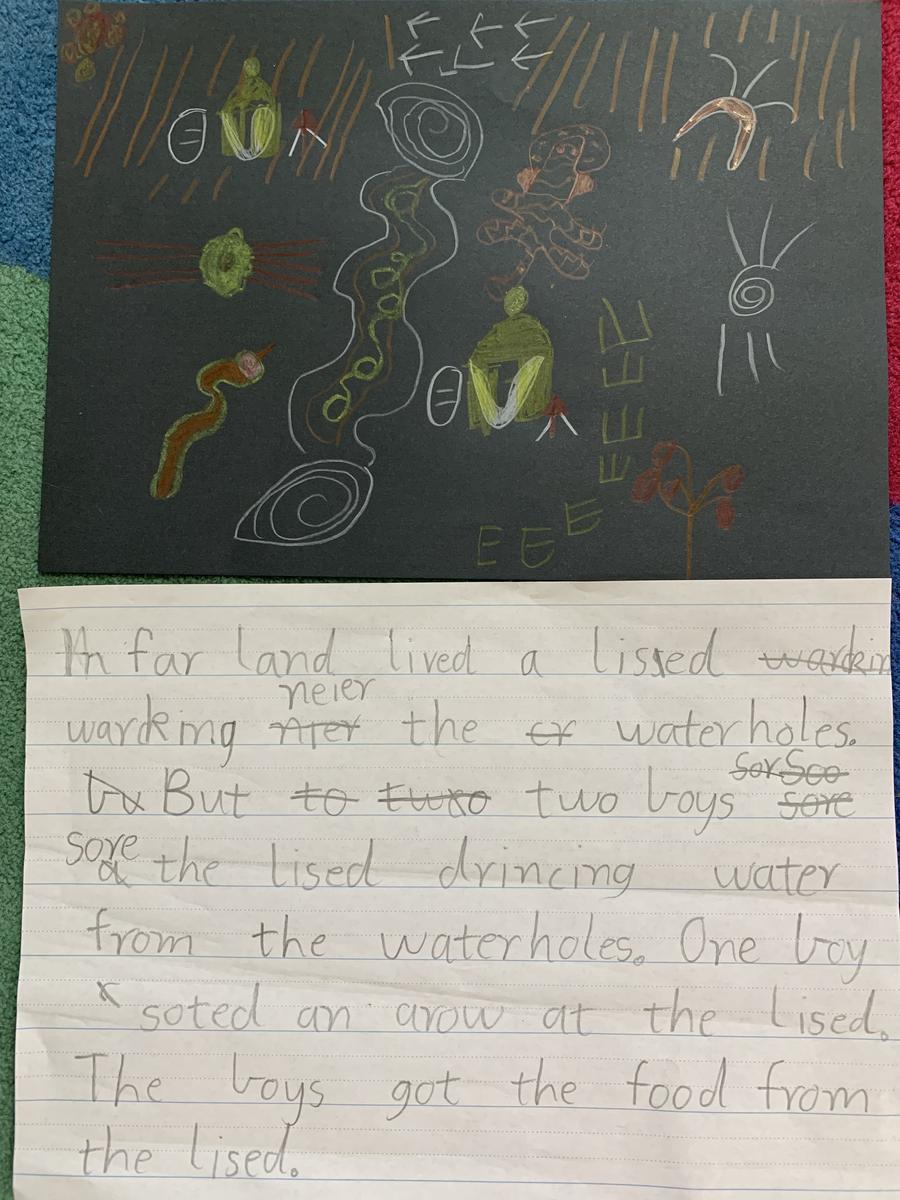 In far land lived a lissed wardkin
warking neier nier the er waterholes.
But to twro two boys sor Soo sore
sore the lised drincing water
from the waterholes. One boy
soted an arow at the lised.
The boys got the food from
the lised.